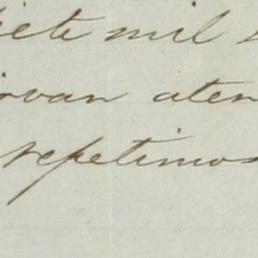 siete mil
rvan aten
repetimos